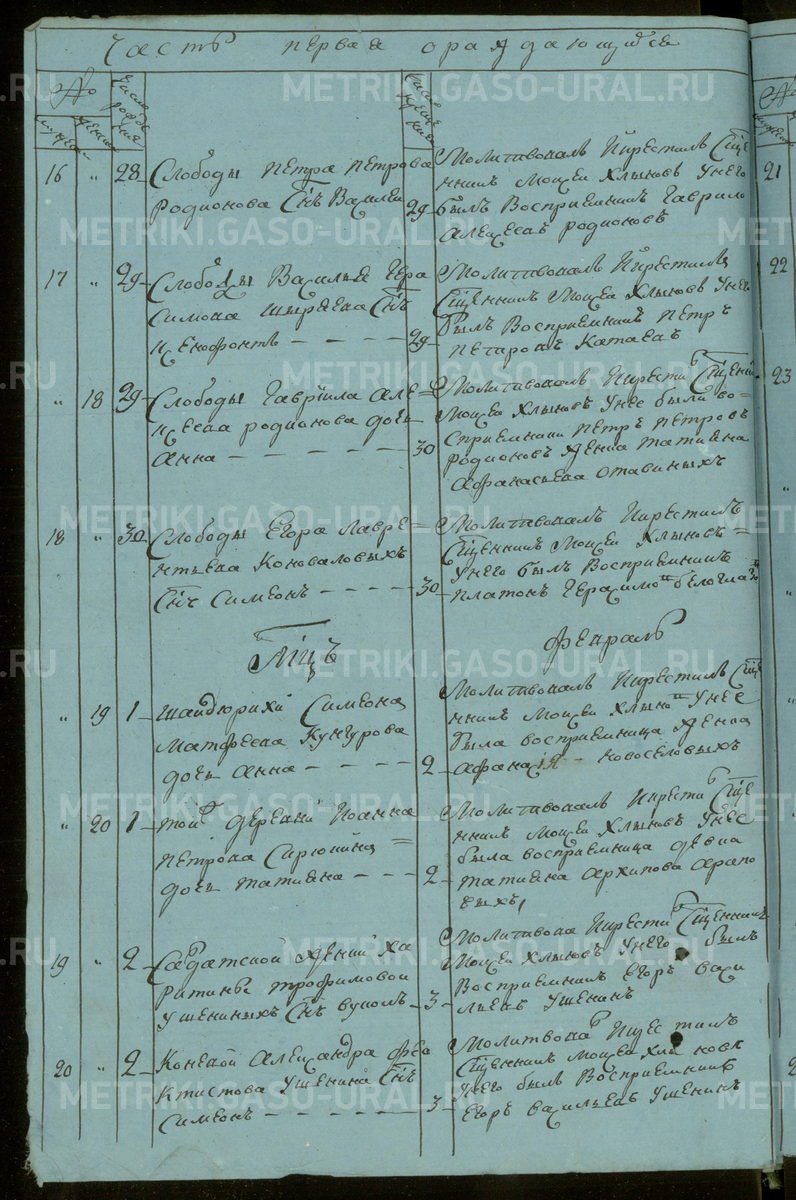 Часть первая ораждающихся
№
Число рожде ния
Число креще ния
мужеска
женска
16 " 28 Слободы Петра Петрова
Родионова Сынъ Василеи 29
Молитвовалъ Икрестилъ Сще
нникъ Моисеи Хлыновъ Унего
былъ Восприемникъ Гаврило
Алексеевъ Родионовъ
17 " 29 Слободы Василья Гера
симова Ширяева Снъ
Ксенофонтъ 29
Молитвовалъ Икрестилъ
Сщенникъ Моисеи Хлыновъ Унего
былъ Восприемникъ Петръ
Петровъ Катаевъ
" 18 29 Слободы Гаврила Але=
ксеева Родионова дочь
Анна 30
Молитвовалъ Икрести Сщенни
Моисеи Хлыновъ Унее были во=
сприемники Петръ Петровъ
Родионовъ Женка Татияна
Афанасьева
18 " 30 Слободы Егора Лавре=
нтьева Коноваловыхъ
Снъ Симеонъ 30
Молитвовалъ Икрестилъ
Сщенникъ Моисеи Хлыновъ=
Унего былъ Восприемникъ
Платонъ Герасимо Белогла
Мцъ Февраль
" 19 1 Шайдюрихи Симеона
Матфеева Кунгурова
дочь Анна 2
Молитвовалъ Икрестилъ Сще
нникъ Моисеи Хлыно Унее
была восприемница Женка
Афанасия Новоселовыхъ
" 20 1 той деревни Иоанна
Петрова Сирюкина=
дочь Татияна 2
Молитвовалъ Икрести Сще
нникъ Моисеи Хлыновъ Унее
была восприемница девка
Татияна Архипова
19 " 2 Салдатской Женки Ха
ритиньи Трофимовой
Ушениныхъ Снъ Вуколъ 3
Молитвова Икрести Сщенникъ
Моисеи Хлыновъ Унего былъ
Восприемникъ Егоръ Васи
льевъ Ушенинъ
20 " 2 Коневой Александра Фео
ктистова Ушенина Снъ
Симеонъ 3
Молитвова Икрестилъ
Сщенникъ Моисеи Хлыновъ
Унего былъ Восприемникъ
Егоръ Васильевъ Ушенинъ
21
22
23
METRIKI.GASO-URAL.RU